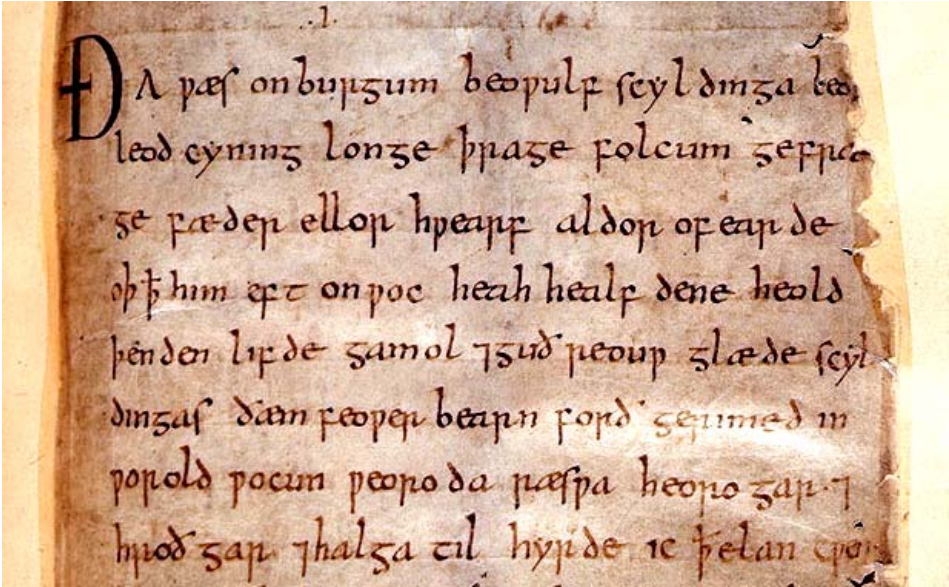 ·I·
ÐA ƿæs onburgum beoƿulf scyldinga beo
leod cyning longe þrage folcum gefræ
ge fæder ellor hƿearf aldor ofearde
oþꝥ him eft onƿoc heah healf dene heold
þenden lifde gamol ⁊guð reouƿ glæde scyl
dingas ðæm feoƿer bearn forð gerimed in
ƿorold ƿocun ƿeoroda ræsƿa heoro gar·⁊
hroð gar ⁊halga til hyrde ic ꝥelan